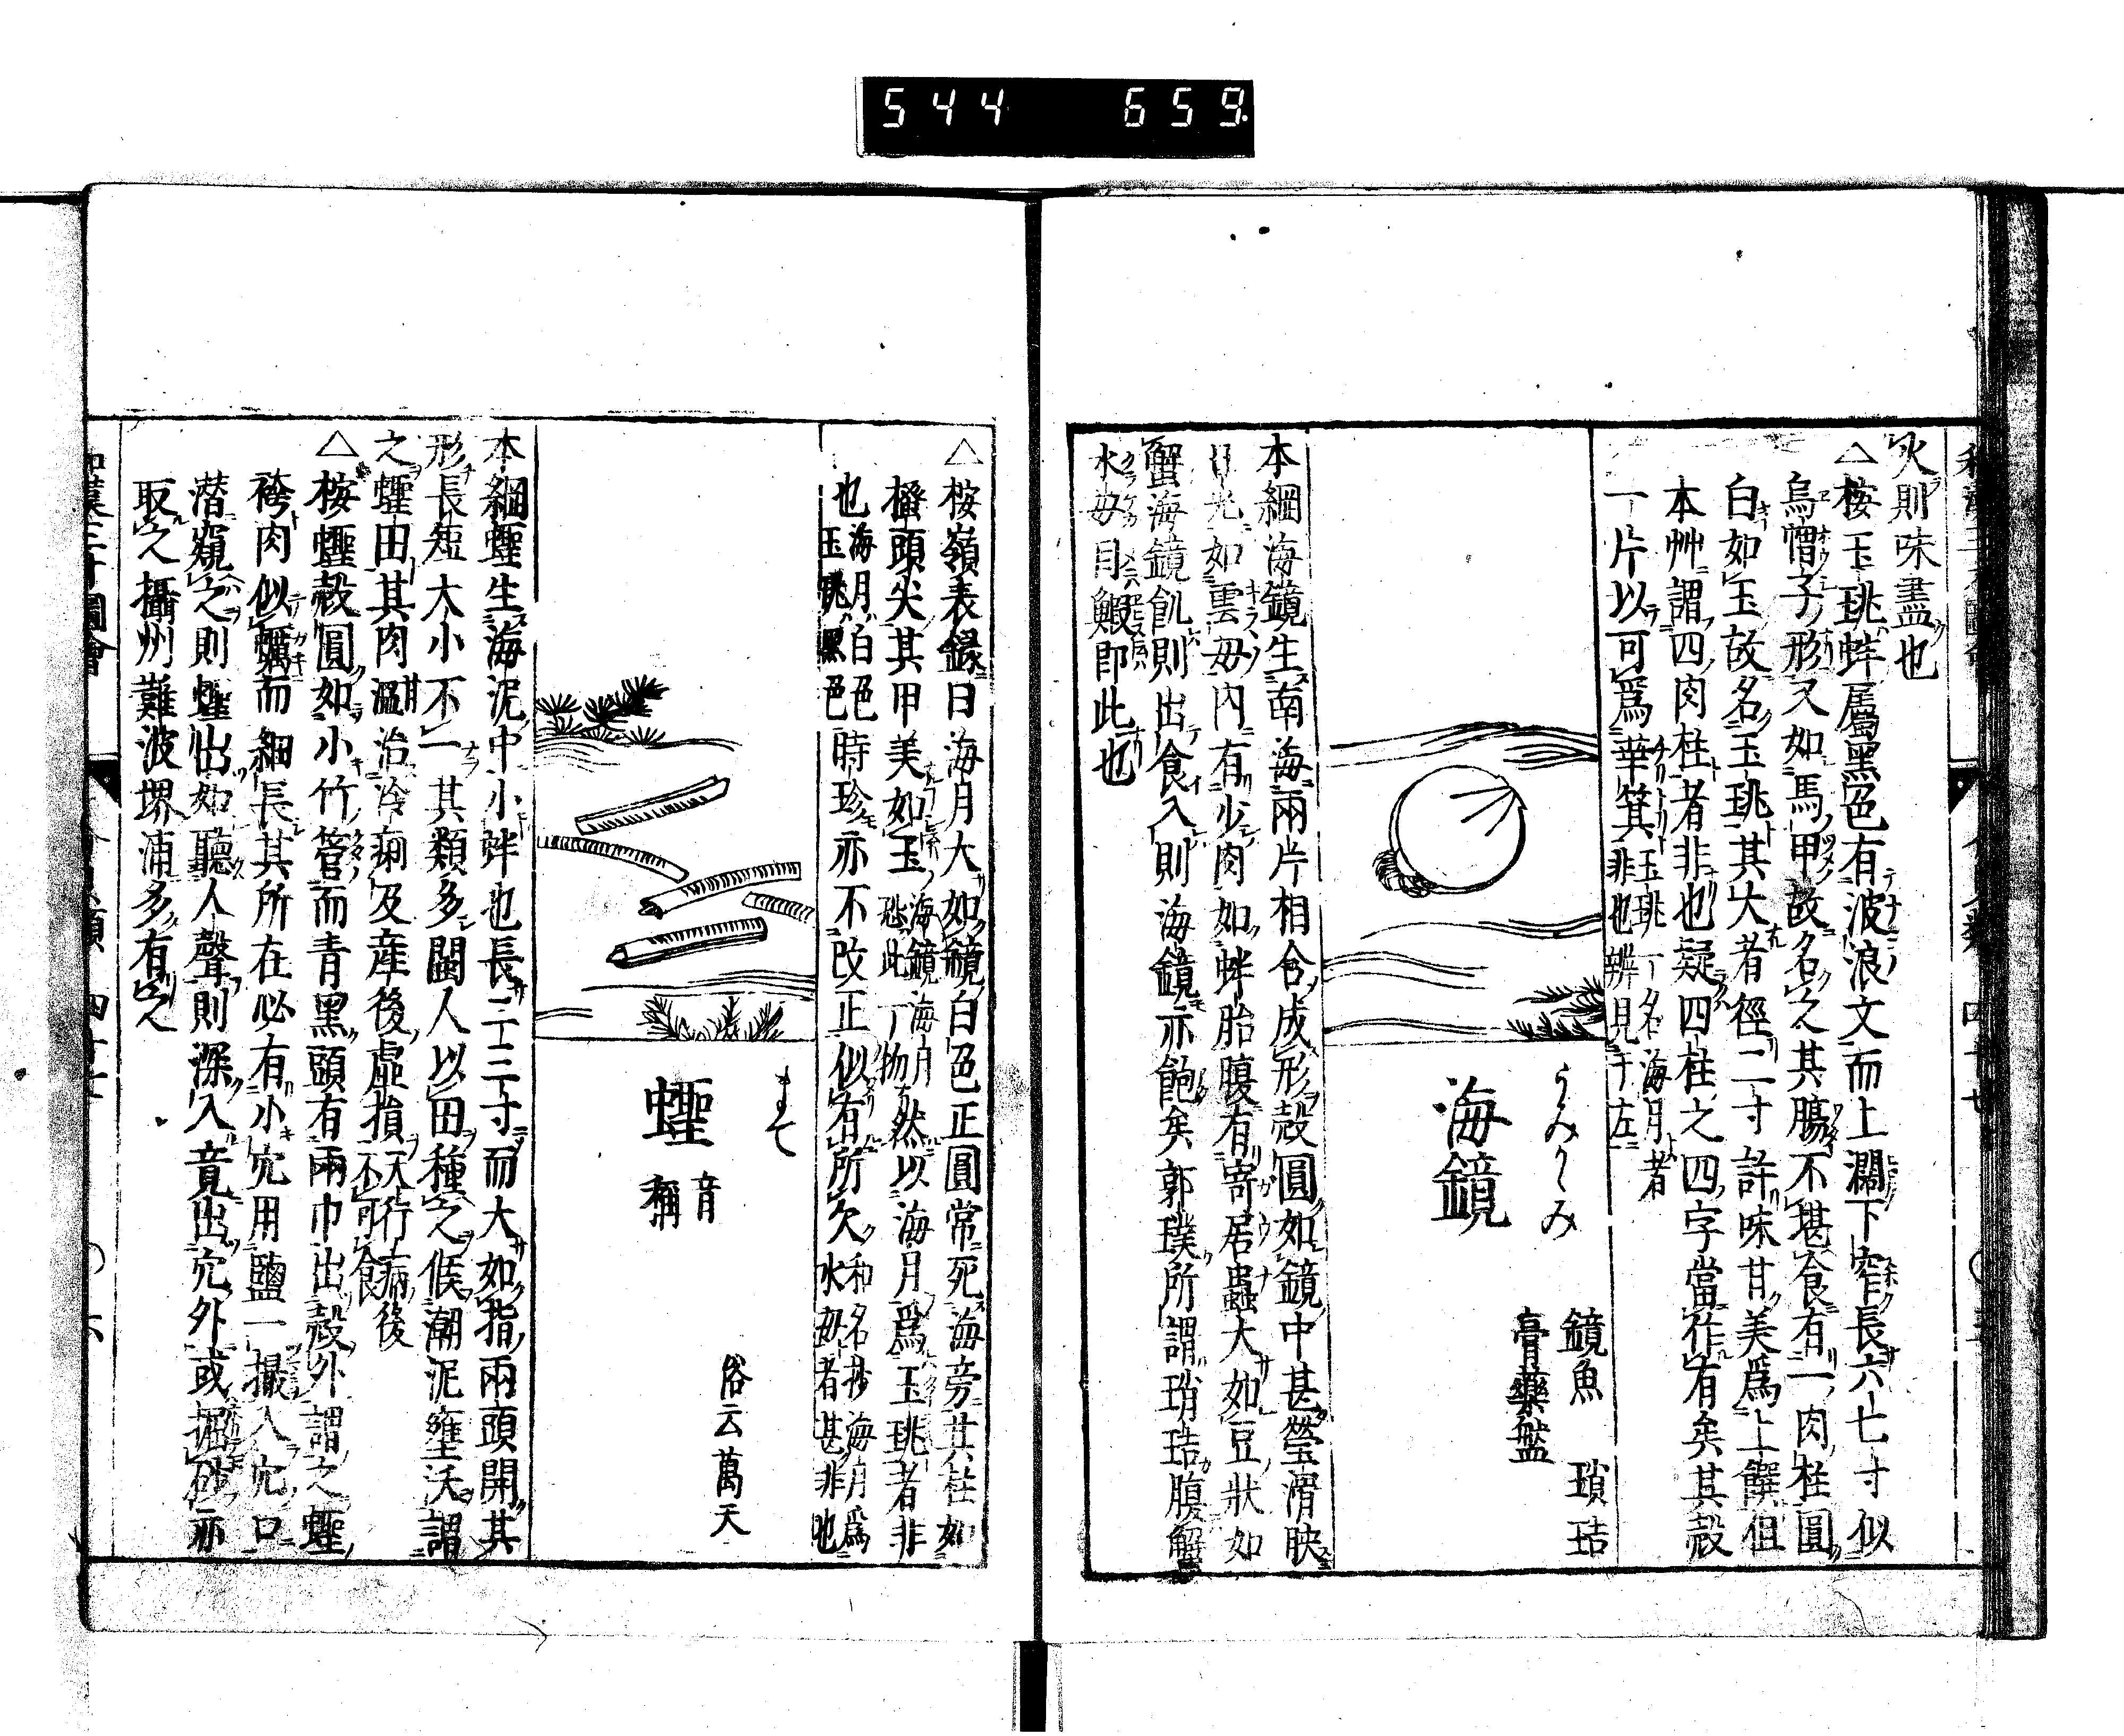 544 659.
火則味盡也
△桉玉珧蚌屬黑色有波浪文而上濶下窄長六七寸似
烏帽子形又如馬甲故名之其腸不堪食有一肉柱圓
白如玉故名玉珧其大者徑二寸許味甘美爲上饌但
本艸謂四肉柱者非也疑四柱之四字當作有矣其殻
一片以可爲華箕
玉珧一名海月者
非也辨見于左
うみかゞみ
海鏡
鏡魚 瑣琂
膏藥盤
本綱海鏡生南海兩片相合成形殻圓如鏡中甚瑩滑映
日光如雲母内有少肉如蚌胎腹有寄居蟲大如豆狀如
蟹海鏡飢則出食入則海鏡亦飽矣郭璞所謂瑣琂腹蟹
水母目鰕即此也
△桉嶺表録曰海月大如鏡白色正圓常死海旁其柱如
搔頭尖其甲美如玉
海鏡海月
一物
然以海月爲玉珧者非
也
海月白色
玉珧黑色
時珍亦不改正似有所欠
和名抄海月爲
水母者甚非也
まて
蟶
音
稱
俗云萬天
本綱蟶生海泥中小蚌也長二三寸而大如指兩頭開其
形長短大小不一其類多閩人以田種之候潮泥壅沃謂
之蟶田其肉
甘
温
治冷痢及産後虛損
天行病後
不可食
△桉蟶殻圓如小竹管而青黑頭有兩巾出殻外謂之蟶
袴肉似蠣而細長其所在必有小穴用鹽一撮入穴口
潜窺之則蟶出如聽人聲則深入竟出穴外或掘砂亦
取之攝州難波堺浦多有之